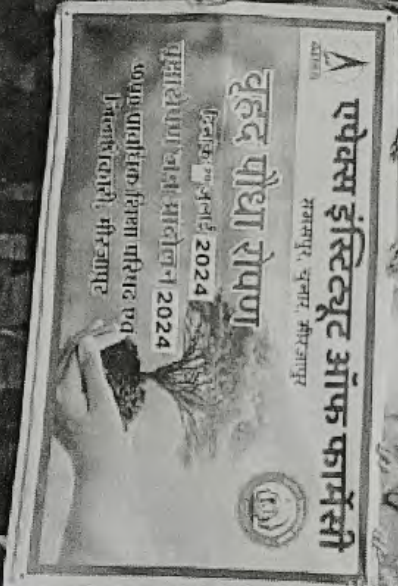 APEX
एपेक्स इंस्टिट्यूट ऑफ फार्मेसी
समसपुर, चुनार, मीरजापुर
वृहद पौधा रोपण
दिनांक जुलाई 2024
वृक्षारोपण जन आन्दोलन 2024
उ०प्र० प्राविधिक शिक्षा परिषद एवं
जिलाधिकारी, मीरजापुर